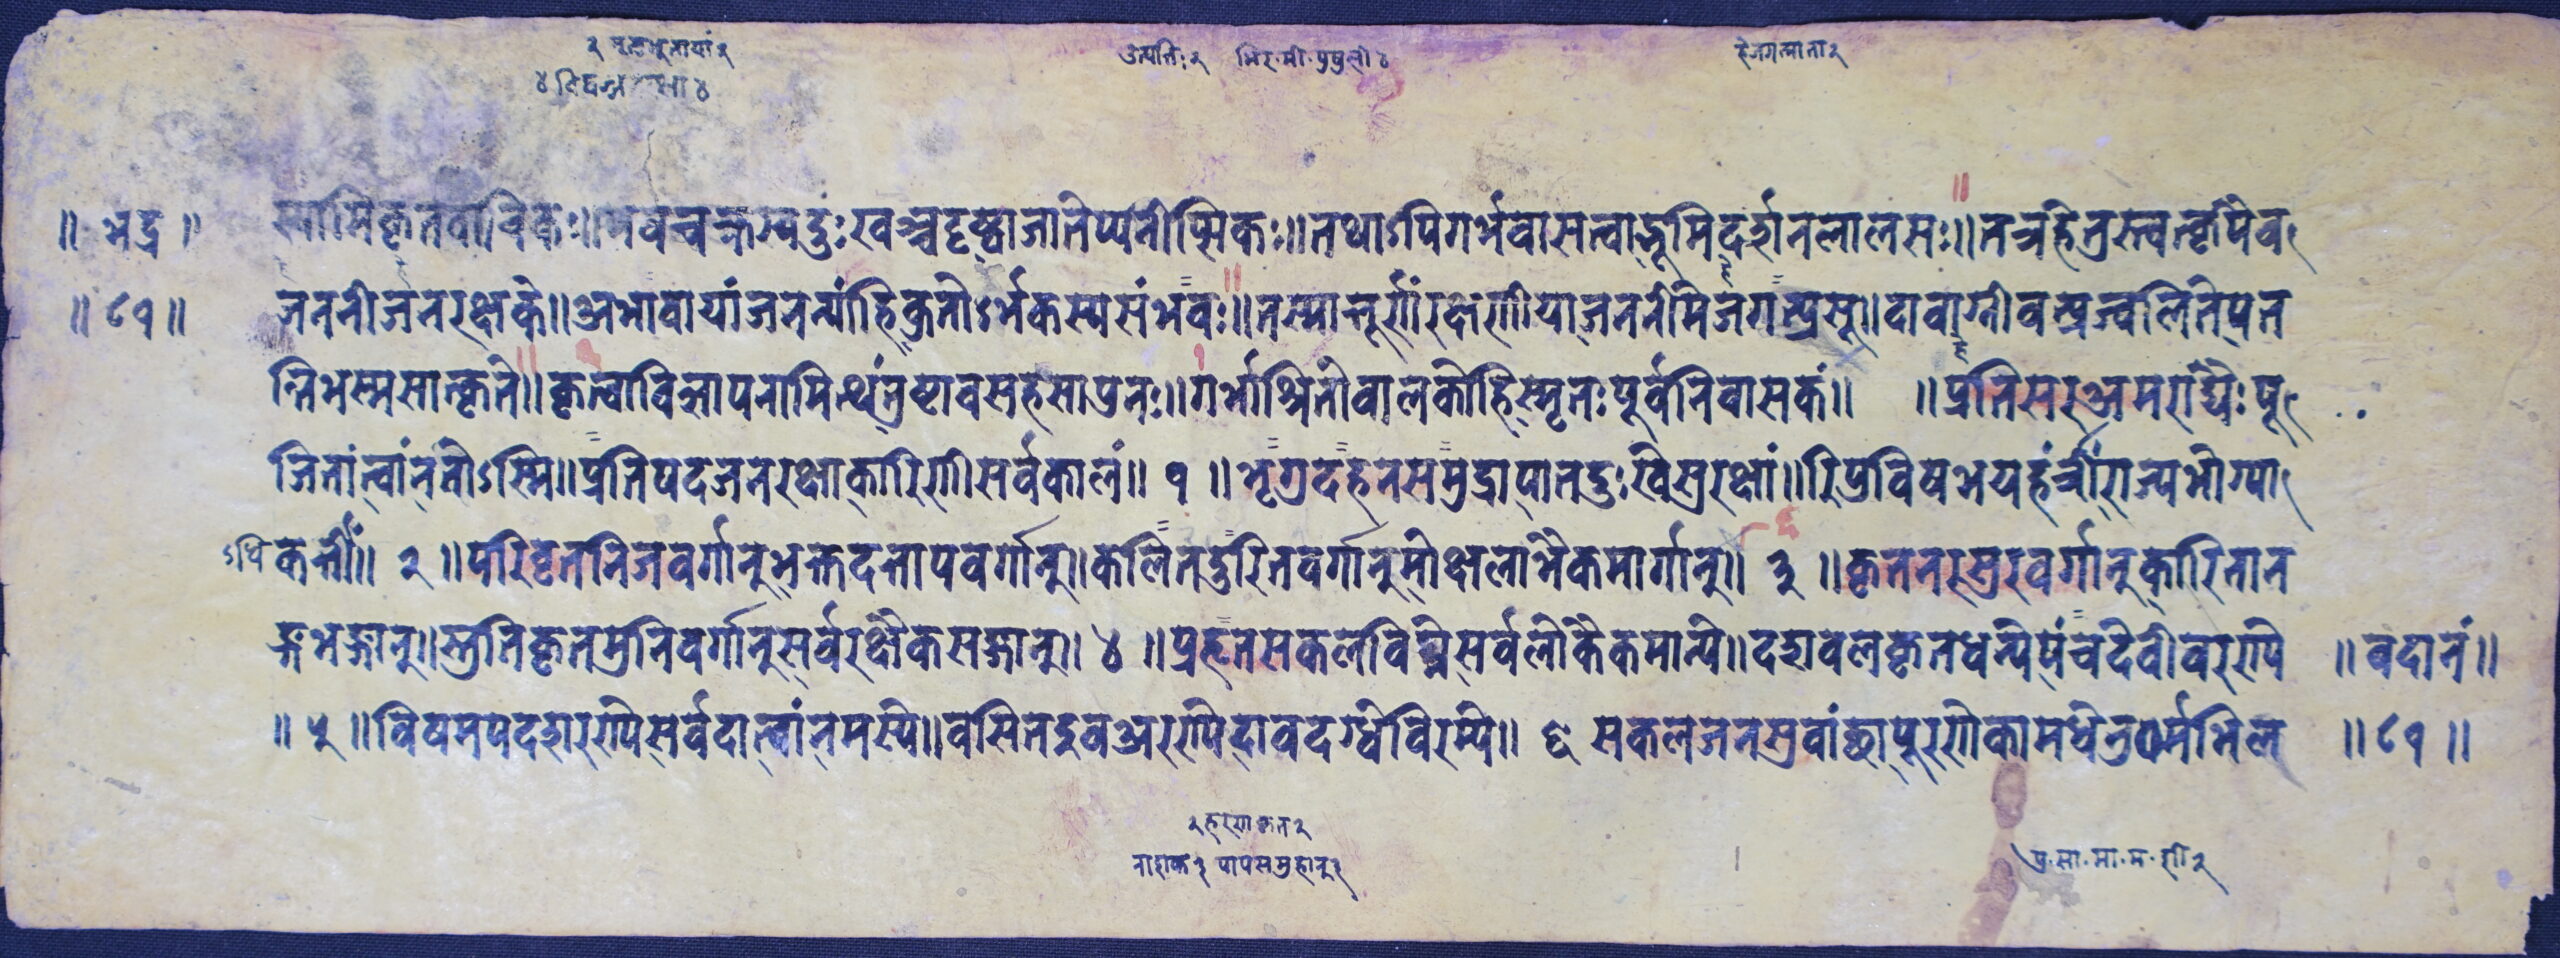 उत्पत्तिः २
हेजगन्माता २
॥ भद्र ॥
स्वामिकृतवाचिकः॥ दुःखञ्चदृष्ट्वाजातोप्यनीप्सिकः॥तथाऽपिगर्भवासत्वाद्भूमिदर्शनलालसः॥तत्रहेतुस्त्वत्कृपैव
॥ ८१ ॥ जननीजनरक्षके॥अभावायांजनन्यांहिकुतोऽर्भकस्यसंभवः॥तस्मात्तूर्णंरक्षणीयाजननीमेजगत्प्रसू॥दावाग्नौवत्प्रज्वलितेपत
न्तिभस्मसात्कृते॥कृत्वाविज्ञापनामित्थंतुष्टावसहसापुनः॥गर्भाश्रितोवालकोहिस्मृतःपूर्वनिवासकं॥ ॥प्रतिसरअमराद्यैःपू
जितांत्वांनतोऽस्मि॥प्रतिपदजनरक्षाकारिणीसर्वकालं॥ १ ॥भृगुदहनसमुद्रापातदुःखेसुरक्षां॥रिपुविषभयहर्त्रींराज्यभोग्या
ऽधि कर्त्रीं॥ २ ॥परिवृतनिजवर्गान्भक्तदत्तापवर्गान्॥कलितदुरितवर्गान्मोक्षलाभैकमार्गान्॥ ३ ॥कृतनरसुरवर्गान्कारितान
ङ्गभङ्गान्॥स्तुतिकृतमुनिवर्गान्सर्वरक्षैकसङ्गान्॥ ४ ॥प्रहृतसकलविघ्नेसर्वलोकैकमान्ये॥दशवलकृतधन्येपंचदेवीवरण्ये ॥ वदानं॥
॥ ५ ॥विषमपदशरण्येसर्वदात्वांनमस्ये॥वसितदुवअरण्येदावदग्धेविरम्ये॥ ६ सकलजनसुवांछापूरणीकामधेनु ॥ ८१ ॥
नाशक ३ पापसमुहान् ३